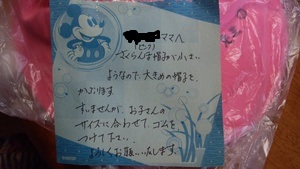 ママへ
(ピンク)
さくらんぼ帽子が小さい
ようなので、大きめの帽子を
かぶります
すいませんが、お子さんの
サイズに合わせて、ゴムを
つけて下さい。
よろしくお願いいたします。